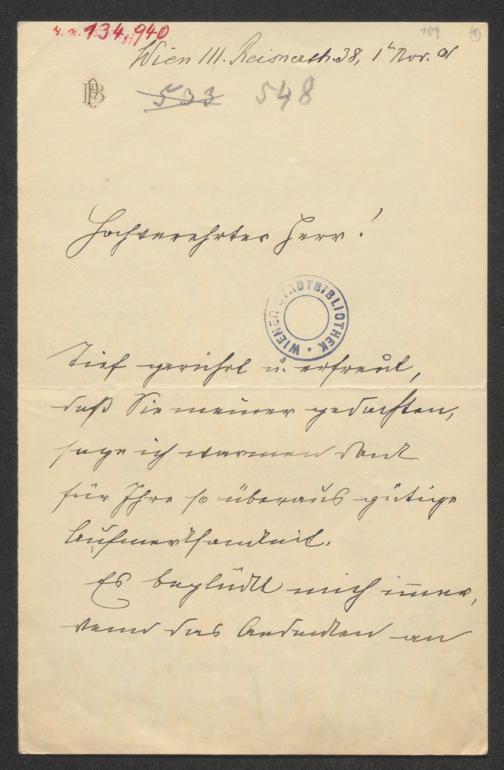 I. N. 134.940
109
1
Wien III. Reisnerstr. 38, 1t Nov.
533 548
Hochverehrter Herr!
WIENER STADTBIBLIOTHEK
Tief gerührt u. erfreut,
daß Sie meiner gedachten,
sage ich warmen Dank
für Ihre so überaus gütige
Aufmerksamkeit.
Es beglückt mich immer,
wenn das Andenken an